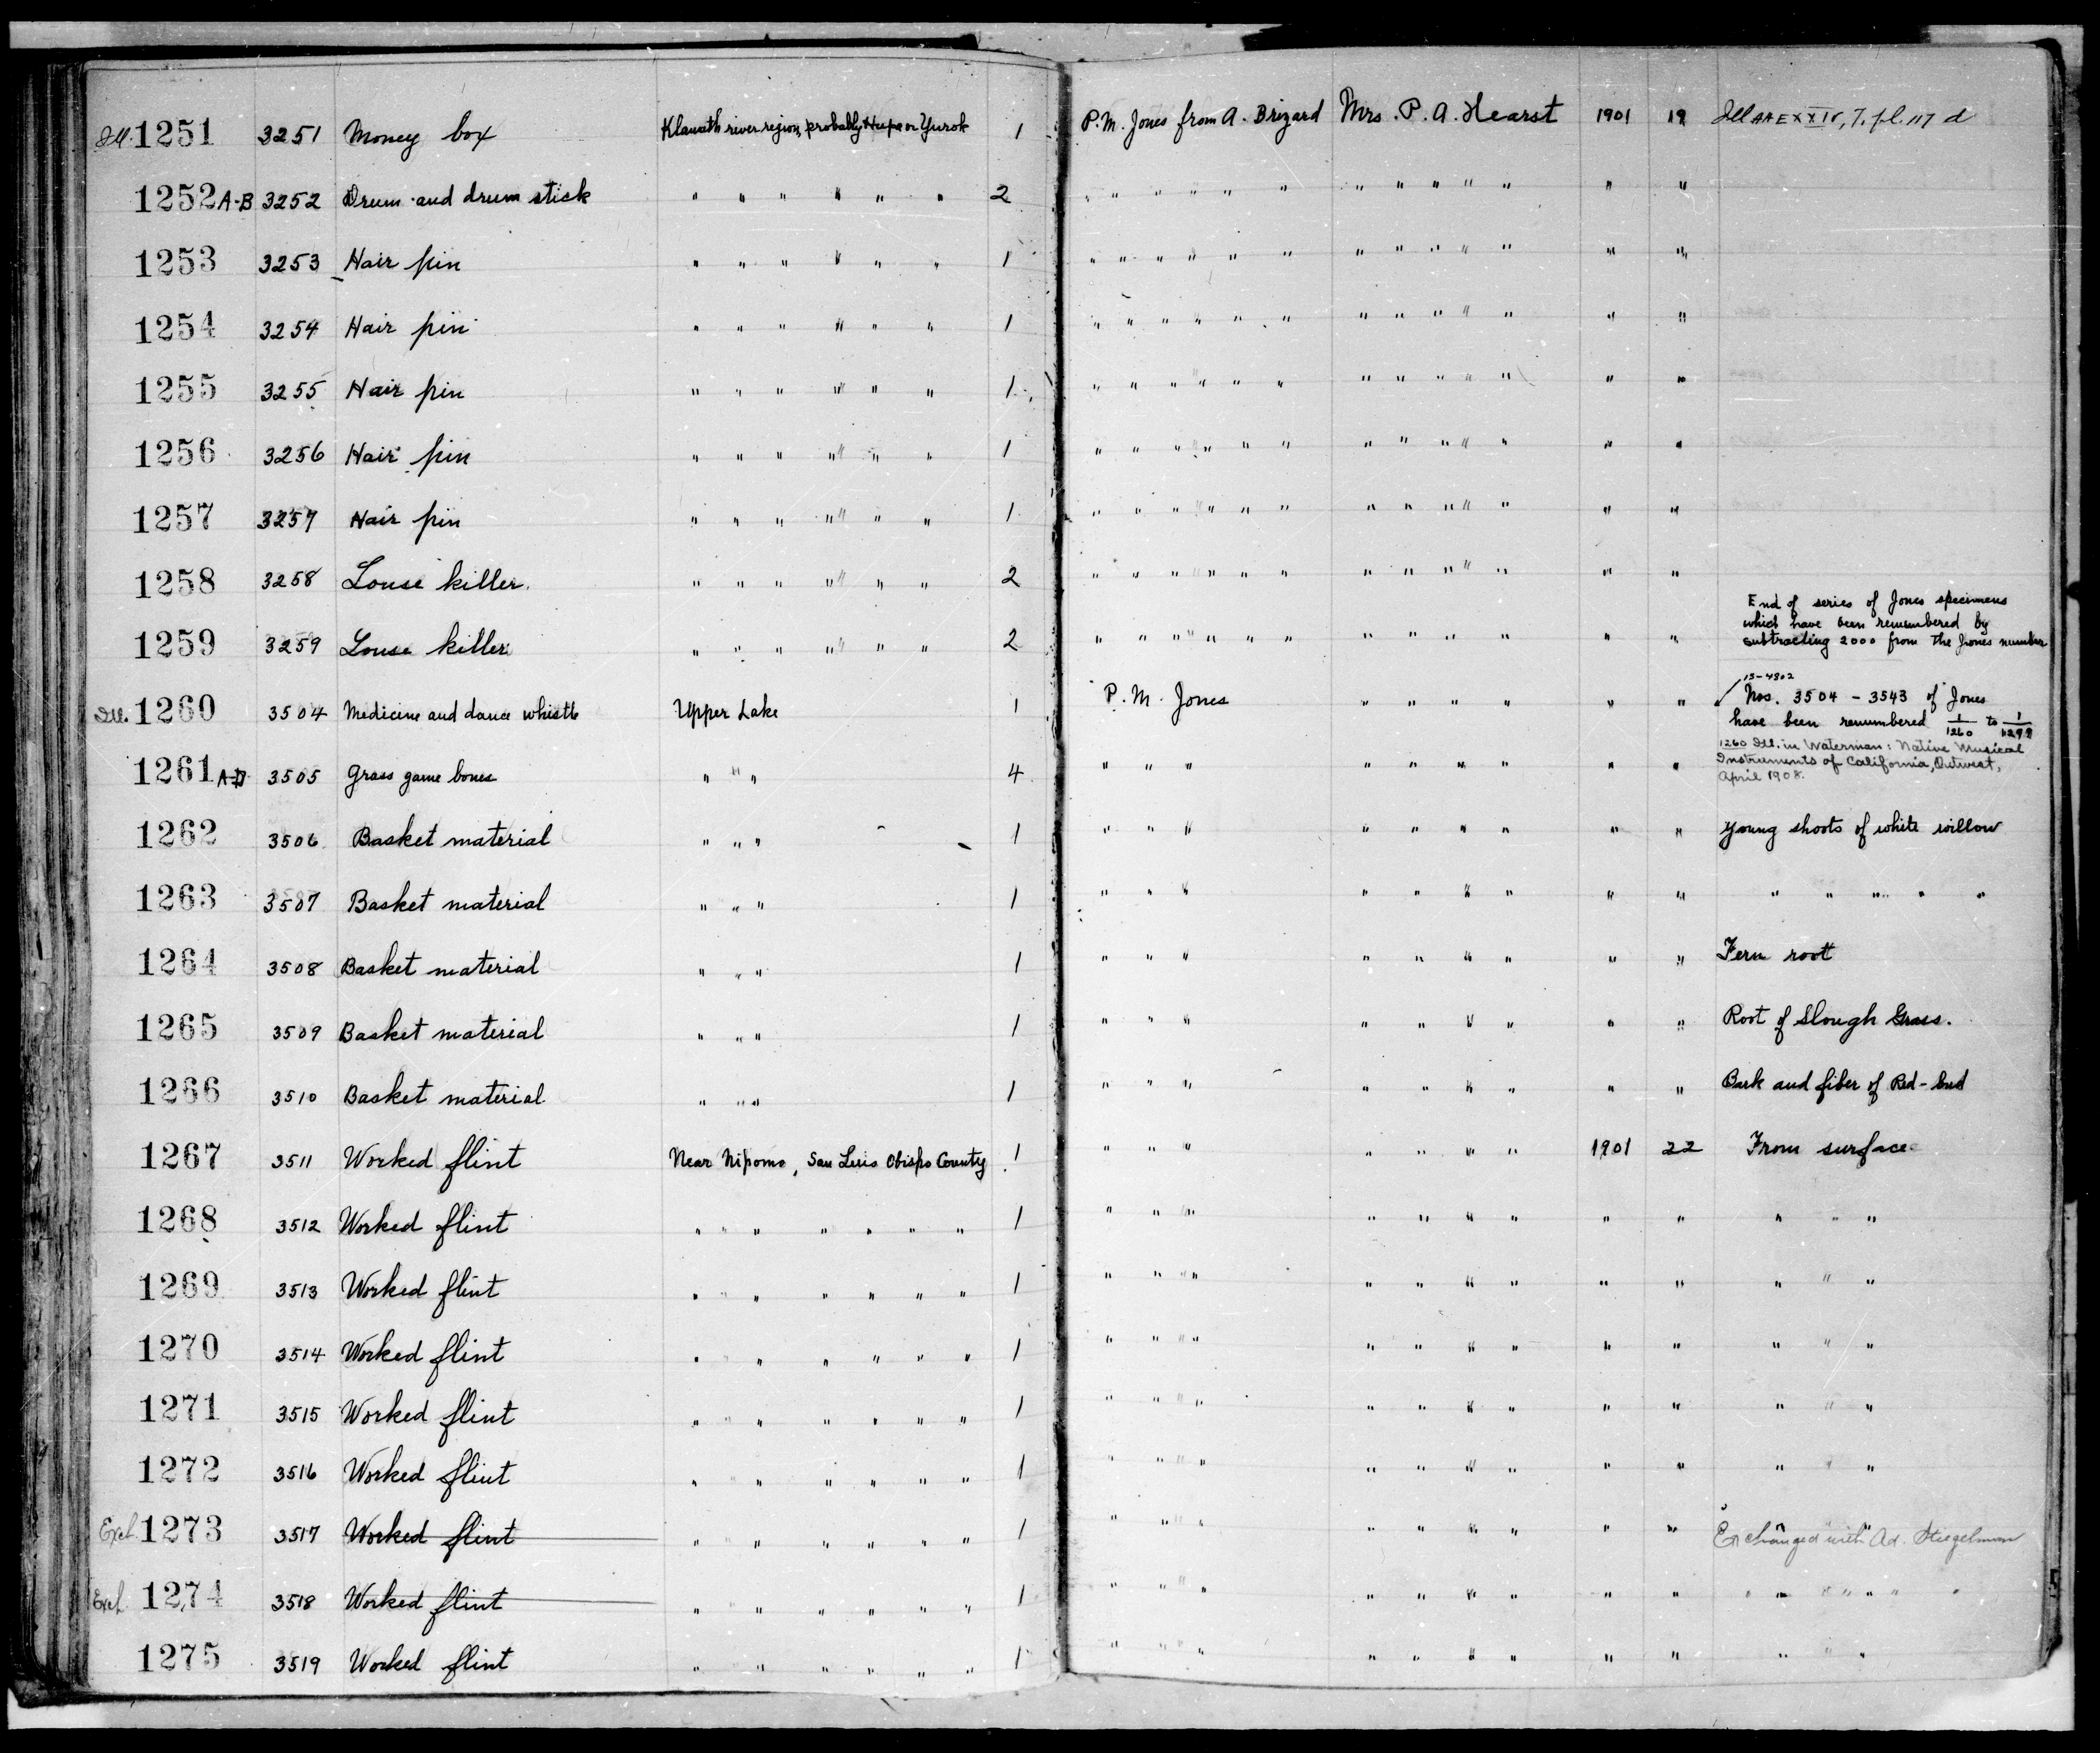 Ill. 1251 3251 Money box Klamath river region, probably Hupa or Yurok 1 P.M. Jones from A. Brizard Mrs. P. A. Hearst 1901 19 Ill AAE XXIV, 7. pl. 117 d
1252 A-B 3252 Drum and drum stick " " " " " " 2 " " " " " " " " " " " " "
1253 3253 Hair pin " " " " " " 1 " " " " " " " " " " " " "
1254 3254 Hair pin " " " " " " 1 " " " " " " " " " " " " "
1255 3255 Hair pin " " " " " " 1 " " " " " " " " " " " " "
1256 3256 Hair pin " " " " " " 1 " " " " " " " " " " " " "
1257 3257 Hair pin " " " " " " 1 " " " " " " " " " " " " "
1258 3258 Louse killer. " " " " " " 2 " " " " " " " " " " " " "
1259 3259 Louse killer " " " " " " 2 " " " " " " " " " " " " "
End of series of Jones specimens
which have been renumbered by
subtracting 2000 from the Jones number
Ill. 1260 3504 Medicine and dance whistle Upper Lake 1 P. M. Jones " " " " " "
15-4302
Nos. 3504 - 3543 of Jones
have been renumbered 1/1260 to 1/1299
1260 Ill. in Waterman: Native Musical
Instruments of California, Outwest,
April 1908.
1261 A-D 3505 Grass game bones " " " 4 " " " " " " " " "
1262 3506 Basket material " " " 1 " " " " " " " " " Young shoots of white willow
1263 3507 Basket material " " " 1 " " " " " " " " " " " " " "
1264 3508 Basket material " " " 1 " " " " " " " " " Fern root
1265 3509 Basket material " " " 1 " " " " " " " " " Root of Slough Grass.
1266 3510 Basket material " " " 1 " " " " " " " " " Bark and fiber of Red-bud
1267 3511 Worked flint Near Nipomo, San Luis Obispo County 1 " " " " " " " 1901 22 From surface
1268 3512 Worked flint " " " " " " " 1 " " " " " " " " " " " "
1269 3513 Worked flint " " " " " " " 1 " " " " " " " " " " " "
1270 3514 Worked flint " " " " " " 1 " " " " " " " " " " " "
1271 3515 Worked flint " " " " " " " 1 " " " " " " " " " " " "
1272 3516 Worked flint " " " " " " " 1 " " " " " " " " " " " "
Exch. 1273 3517 Worked flint " " " " " " " 1 " " " " " " " " " Exchanged with Ad. Stiegelman
Exch. 1274 3518 Worked flint " " " " " " 1 " " " " " " " " " " " " " " "
1275 3519 Worked flint " " " " " " 1 " " " " " " " " " " " "